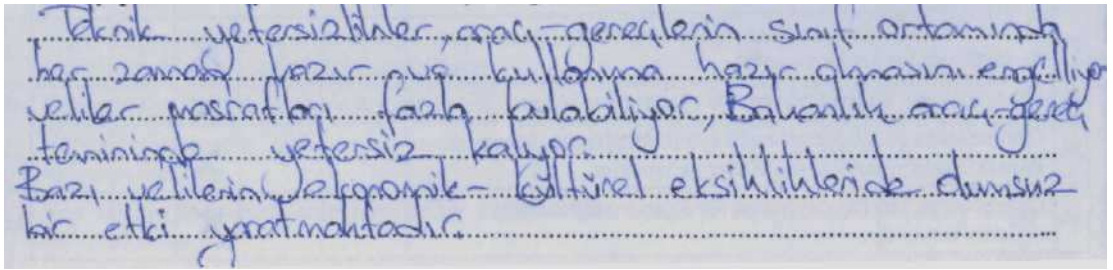 Teknik yetersizlikler, araç-gereçlerin sınıf ortamında
her zaman hazır ve kullanıma hazır olmasını engelliyor
veliler masrafları fazla bulabiliyor, Bakanlık araç-gereç
temininde yetersiz kalıyor.
Bazı velilerin ekonomik-kültürel eksiklikleride olumsuz
bir etki yaratmaktadır.